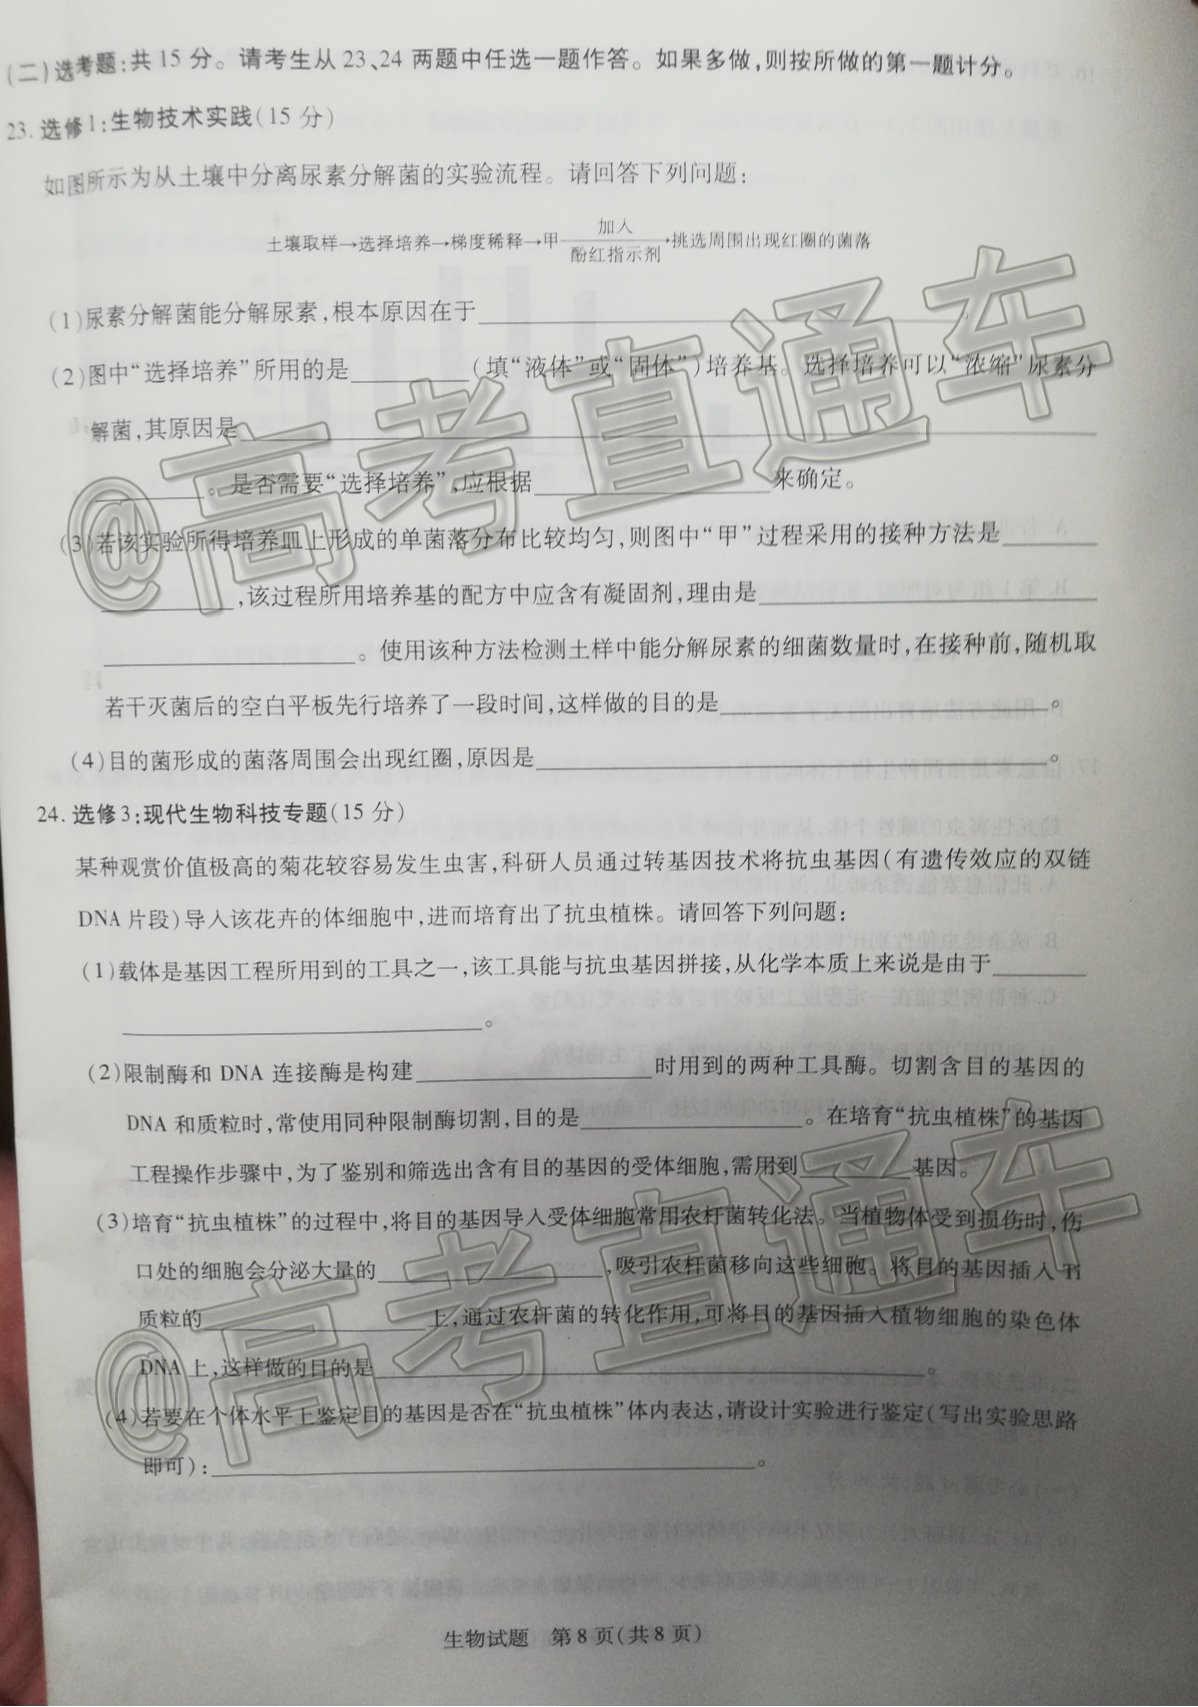 (二)选考题:共15分。请考生从23、24两题中任选一题作答。如果多做,则按所做的第一题计分。
23. 选修1:生物技术实践(15分)
如图所示为从土壤中分离尿素分解菌的实验流程。请回答下列问题:
土壤取样→选择培养→梯度稀释→甲 加入 酚红指示剂 →挑选周围出现红圈的菌落
(1)尿素分解菌能分解尿素,根本原因在于
(2)图中“选择培养”所用的是________(填“液体”或“固体”)培养基。选择培养可以“浓缩”尿素分
解菌,其原因是
________。是否需要“选择培养”,应根据________来确定。
(3)若该实验所得培养皿上形成的单菌落分布比较均匀,则图中“甲”过程采用的接种方法是________
________,该过程所用培养基的配方中应含有凝固剂,理由是________
________。使用该种方法检测土样中能分解尿素的细菌数量时,在接种前,随机取
若干灭菌后的空白平板先行培养了一段时间,这样做的目的是________。
(4)目的菌形成的菌落周围会出现红圈,原因是________。
24. 选修3:现代生物科技专题(15分)
某种观赏价值极高的菊花较容易发生虫害,科研人员通过转基因技术将抗虫基因(有遗传效应的双链
DNA片段)导入该花卉的体细胞中,进而培育出了抗虫植株。请回答下列问题:
(1)载体是基因工程所用到的工具之一,该工具能与抗虫基因拼接,从化学本质上来说是由于________
________。
(2)限制酶和DNA连接酶是构建________时用到的两种工具酶。切割含目的基因的
DNA和质粒时,常使用同种限制酶切割,目的是________。在培育“抗虫植株”的基因
工程操作步骤中,为了鉴别和筛选出含有目的基因的受体细胞,需用到________基因。
(3)培育“抗虫植株”的过程中,将目的基因导入受体细胞常用农杆菌转化法。当植物体受到损伤时,伤
口处的细胞会分泌大量的________,吸引农杆菌移向这些细胞。将目的基因插入Ti
质粒的________上,通过农杆菌的转化作用,可将目的基因插入植物细胞的染色体
DNA上,这样做的目的是________。
(4)若要在个体水平上鉴定目的基因是否在“抗虫植株”体内表达,请设计实验进行鉴定(写出实验思路
即可):________。
生物试题 第8页(共8页)
@高考直通车
@高考直通车